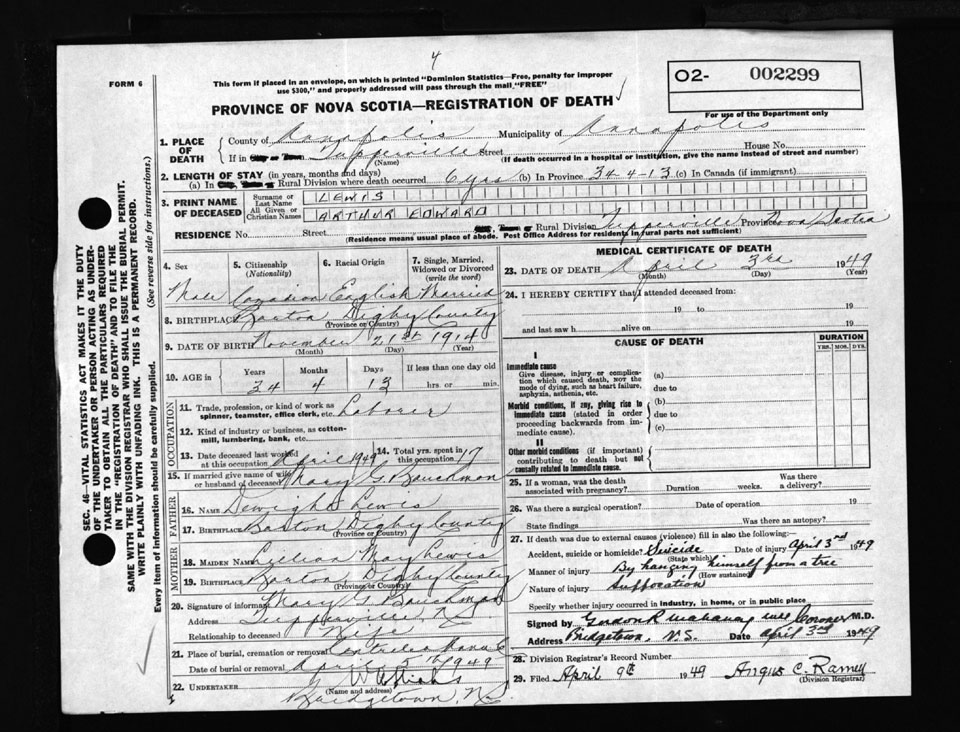 4
FORM 6
This form if placed in an envelope, on which is printed "Dominion Statistics—Free, penalty for improper
use $300," and properly addressed will pass through the mail, "FREE"
PROVINCE OF NOVA SCOTIA—REGISTRATION OF DEATH
O2- 002299
For use of the Department only
1. PLACE OF DEATH
County of Annapolis Municipality of Annapolis
If in City or Town Tupperville Street House No.
(Name) (If death occurred in a hospital or institution, give the name instead of street and number)
2. LENGTH OF STAY (in years, months and days)
(a) In City, Town or Rural Division where death occurred 6 yrs (b) In Province 34-4-13 (c) In Canada (if immigrant)
3. PRINT NAME OF DECEASED
Surname or Last Name LEWIS
All Given or Christian Names ARTHUR EDWARD
RESIDENCE No. Street City, Town or Rural Division Tupperville Province Nova Scotia
(Residence means usual place of abode. Post Office Address for residents in rural parts not sufficient)
4. Sex
5. Citizenship (Nationality)
6. Racial Origin
7. Single, Married, Widowed or Divorced (write the word)
Male Canadian English Married
8. BIRTHPLACE Barton Digby County
(Province or Country)
9. DATE OF BIRTH November 21st 1914
(Month) (Day) (Year)
10. AGE in
Years Months Days If less than one day old
34 4 13 hrs. or min.
OCCUPATION
11. Trade, profession, or kind of work as spinner, teamster, office clerk, etc. Laborer
12. Kind of industry or business, as cotton-mill, lumbering, bank, etc.
13. Date deceased last worked at this occupation April 1949
14. Total yrs. spent in this occupation 17
15. If married give name of wife or husband of deceased Mary G. Bauchman
FATHER
16. NAME Dewight Lewis
17. BIRTHPLACE Barton Digby County
(Province or Country)
MOTHER
18. MAIDEN NAME Lillian May Lewis
19. BIRTHPLACE Barton Digby County
(Province or Country)
20. Signature of informant Mary G. Bauchman
Address Tupperville, N.S.
Relationship to deceased Wife
21. Place of burial, cremation or removal
Date of burial or removal April 5th 1949
22. UNDERTAKER Williams
(Name and address)
Bridgetown, N.S.
MEDICAL CERTIFICATE OF DEATH
23. DATE OF DEATH April 3rd 1949
(Month) (Day) (Year)
24. I HEREBY CERTIFY that I attended deceased from:
19 to 19
and last saw h alive on 19
CAUSE OF DEATH
DURATION
YRS. MOS. DYS.
I
Immediate cause
Give disease, injury or complication which caused death, not the mode of dying, such as heart failure, asphyxia, asthenia, etc.
(a)
due to
Morbid conditions, if any, giving rise to immediate cause (stated in order proceeding backwards from immediate cause).
(b)
due to
(c)
II
Other morbid conditions (if important) contributing to death but not causally related to immediate cause.
25. If a woman, was the death associated with pregnancy? Duration weeks. Was there a delivery?
26. Was there a surgical operation? Date of operation 19
State findings Was there an autopsy?
27. If death was due to external causes (violence) fill in also the following:—
Accident, suicide or homicide? Suicide Date of injury April 3rd 1949
(State which)
Manner of injury By hanging himself from a tree
(How sustained)
Nature of injury Suffocation
Specify whether injury occurred in industry, in home, or in public place
Signed by Coroner M.D.
Address Bridgetown, N.S. Date April 3rd 1949
28. Division Registrar's Record Number
29. Filed April 9th 1949 Angus C. Ramey
(Division Registrar)
SEC. 46—VITAL STATISTICS ACT MAKES IT THE DUTY
OF THE UNDERTAKER OR PERSON ACTING AS UNDER-
TAKER TO OBTAIN ALL THE PARTICULARS REQUIRED
IN THE "REGISTRATION OF DEATH" AND TO FILE THE
SAME WITH THE DIVISION REGISTRAR WHO SHALL ISSUE THE BURIAL PERMIT.
WRITE PLAINLY WITH UNFADING INK. THIS IS A PERMANENT RECORD.
Every item of information should be carefully supplied. (See reverse side for instructions.)